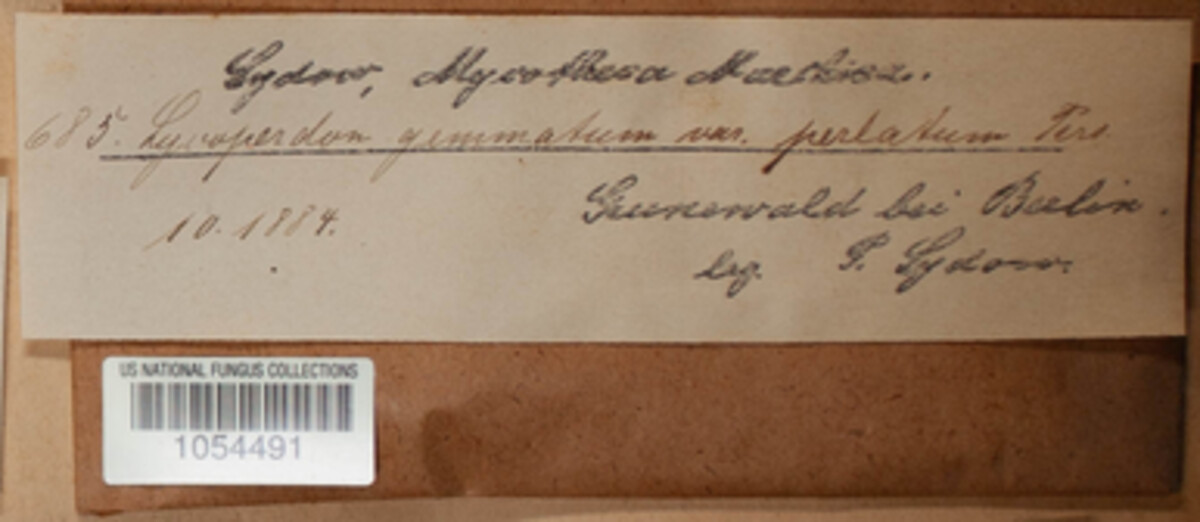 Sydow, Mycotheca Marchica.
685. Lycoperdon gemmatum var. perlatum Pers.
10. 1884.
Grunewald bei Berlin.
leg. P. Sydow.
US NATIONAL FUNGUS COLLECTIONS
1054491